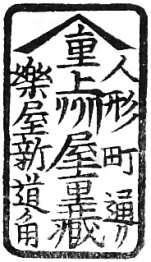 人形町通り
重上州屋重蔵
樂屋新道角